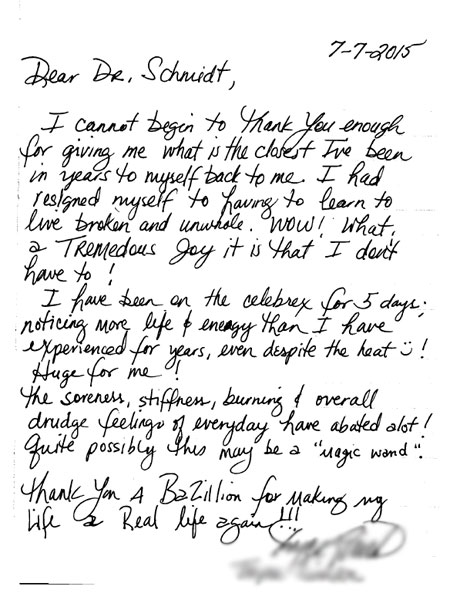 7-7-2015
Dear Dr. Schmidt,
I cannot begin to thank you enough
for giving me what is the closest I've been
in years to myself back to me. I had
resigned myself to having to learn to
live broken and unwhole. WOW! What
a TREMEDOUS Joy it is that I don't
have to!
I have been on the celebrex for 5 days;
noticing more life & energy than I have
experienced for years, even despite the heat ☺!
Huge for me!
the soreness, stiffness, burning & overall
drudge feelings of everyday have abated alot!
Quite possibly this may be a "Magic wand".
Thank You A BaZillion for making my
life a Real life again!!!